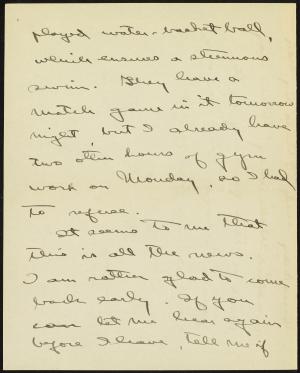 played water-basket ball,
which ensures a strenuous
swim. They have a
match game in it tomorrow
night, but I already have
two other hours of gym
work on Monday, so I had
to refuse.
It seems to me that
this is all the news.
I am rather glad to come
back early. If you
can let me hear again
before I leave, tell me if